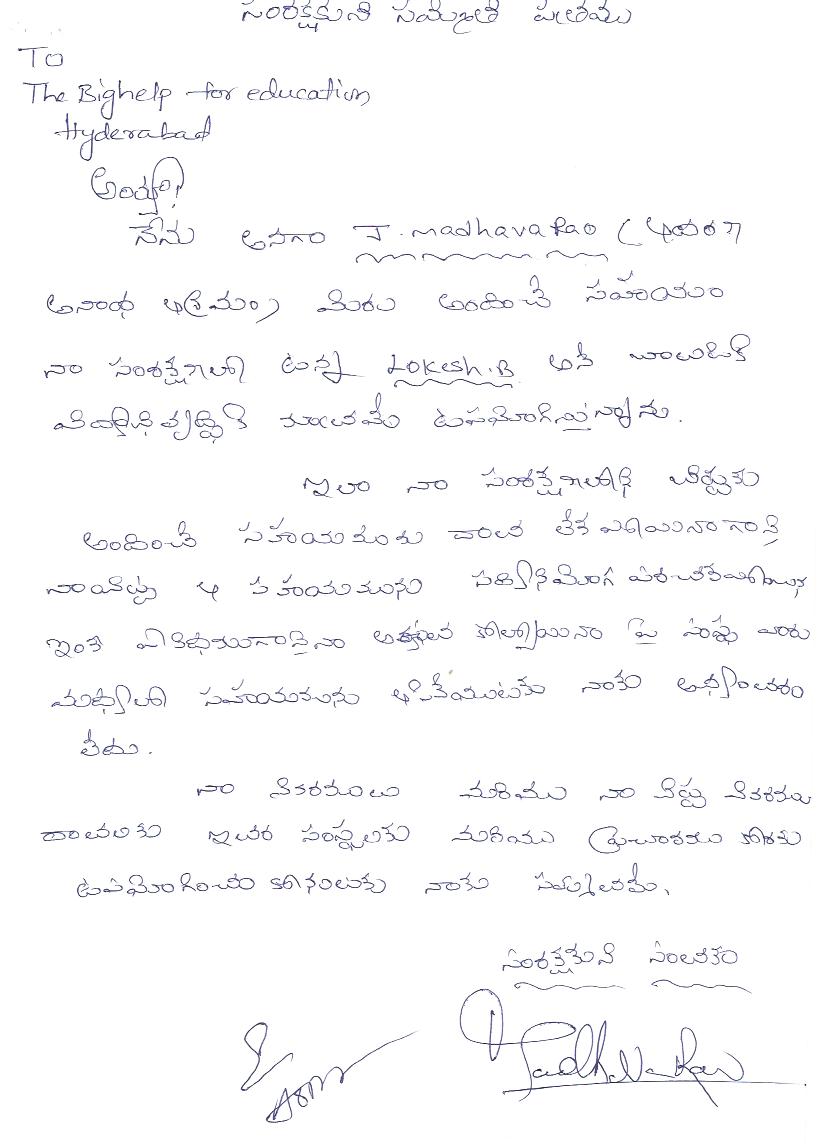 సంరక్షకుని సమ్మతి పత్రము
To
The Bighelp for education
Hyderabad
అయ్యా!
నేను అనగా J. Madhava Rao (
అనాంధ ఆశ్రమం) మీరు అందించే సహాయం
నా సంరక్షణలో ఉన్న Lokesh.B అనే బాలుడికి
మాత్రమే ఉపయోగిస్తున్నాను.
ఇలా నా సంరక్షణలోని బిడ్డకు
అందించే సహాయముకు దాత లేక
నా బిడ్డ ఆ సహాయమును
ఇంకే విధముగానైనా పై సంస్థ వారు
మధ్యలో సహాయమును ఆపివేయుటకు నాకు అభ్యంతరం
లేదు.
నా వివరములు మరియు నా బిడ్డ వివరములు
దాతలకు ఇతర సంస్థలకు మరియు ప్రచారము కొరకు
ఉపయోగించు నాకు సమ్మతమే.
సంరక్షకుని సంతకం
Madhava Rao